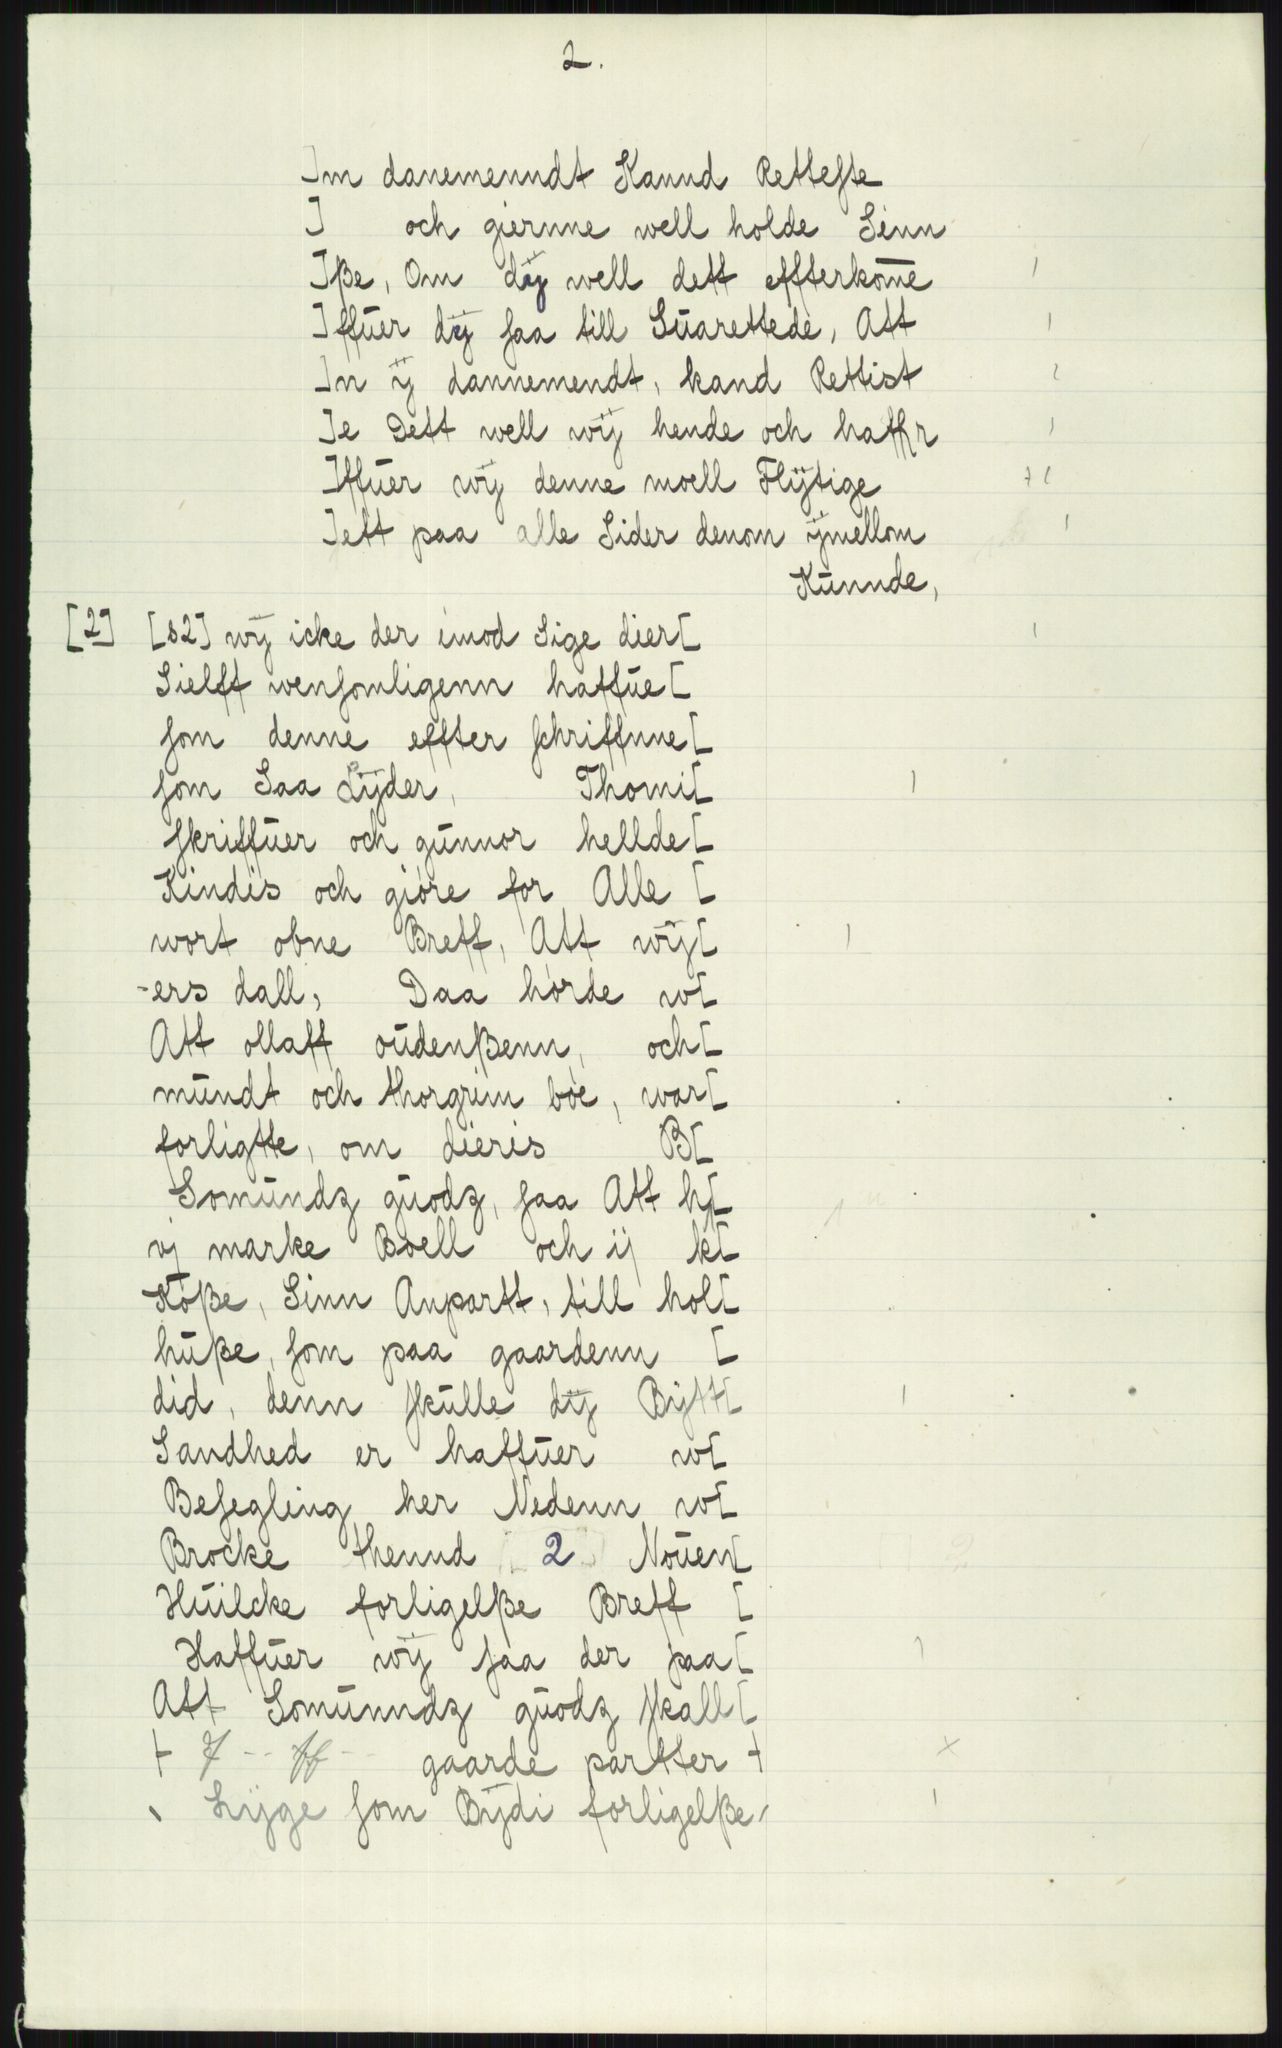 2.
]m danemenndt Kannd Rettefte
] och giernne well holde Sinn
]ße, Om dÿ well dett effterkom̄e
]ffuer dÿ saa till Suarettede, Att
]n ÿ dannemendt, kand Rettist
]e Dett well wÿ hende och haffr
]ffuer wÿ denne moell Flÿtige
]ett paa alle Sider denom ÿmellom
Kunnde,
[2] [s2] wÿ icke der imod Sige dier[
Sielff wensomligenn haffue[
som denne effter schriffnne[
som Saa Lÿder, Thomi[
skriffuer och gunnor hellde[
Kindis och giøre for Alle [
wort obne Breff, Att wÿ[
-ers dall, Daa hørde w[
Att ollaff oudenßenn, och[
mundt och thorgrim bøe, war[
forligtte, om dieris B[
Somundz guodz, saa Att h[
vj marke Boell och ij k[
Køße, Sinn Anpartt, till hol[
huße, som paa gaardenn [
did, denn skulle dÿ Bÿtt[
Sandhed er haffuer w[
Besegling her Nedenn w[
Brocke thennd [2] Nouen[
Huilcke forligelße Breff [
Haffuer wÿ saa der paa[
Att Somunndz guodz skall[
gaarde partter
Lÿge som Bÿdi forligelße